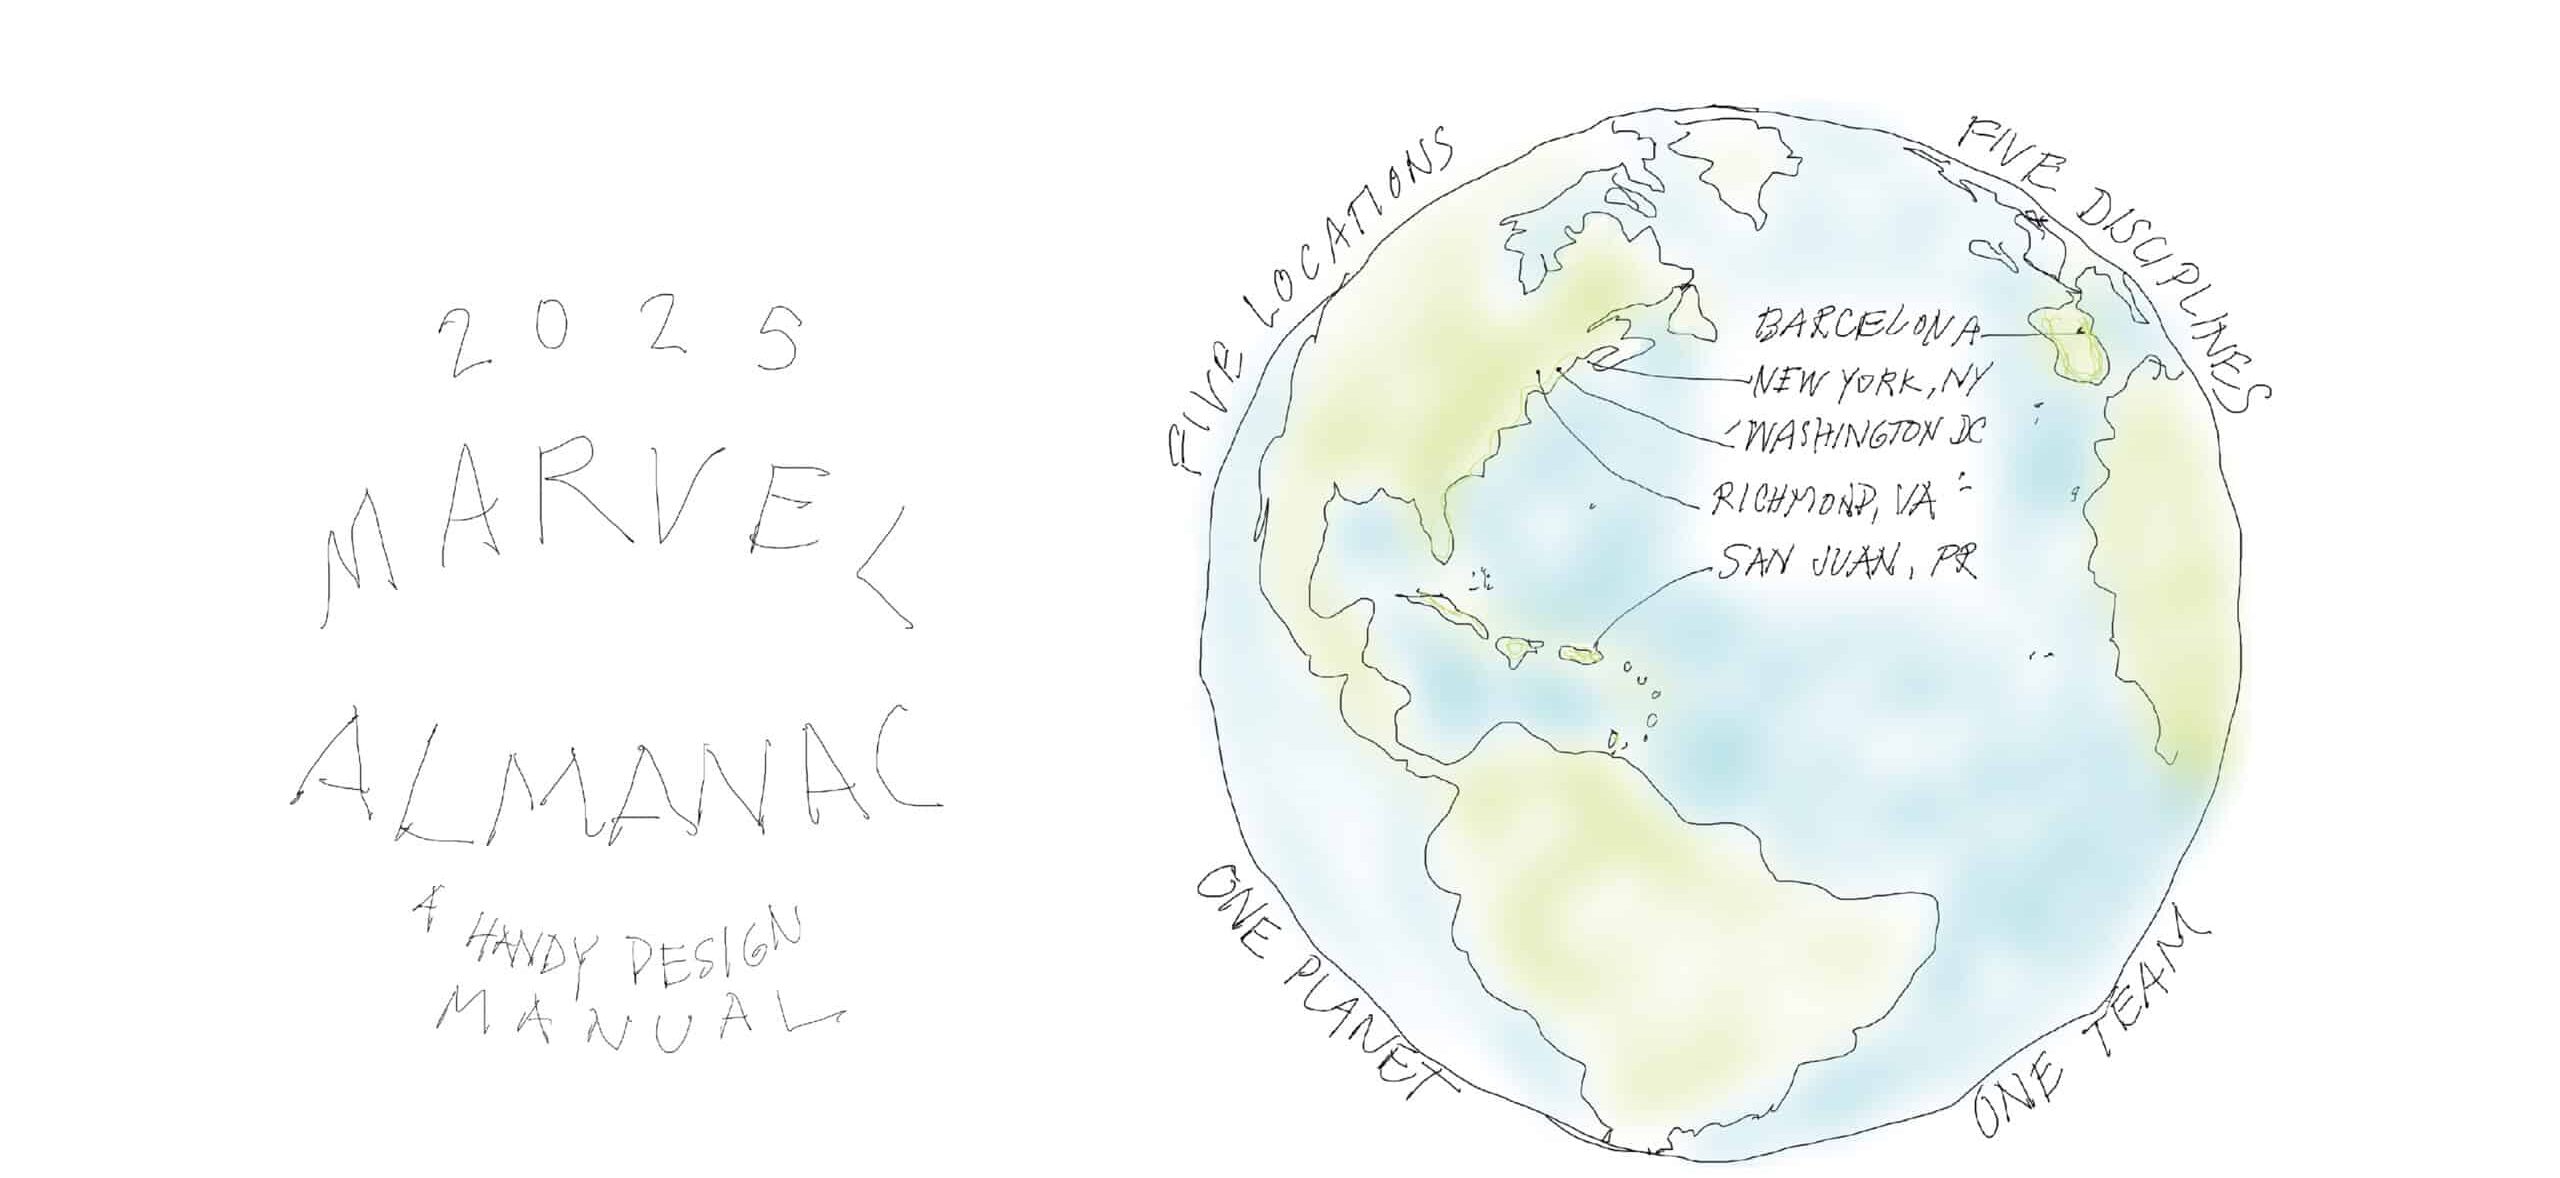 2025
MARVEL
ALMANAC
A HANDY DESIGN
MANUAL
FIVE LOCATIONS
FIVE DISCIPLINES
BARCELONA
NEW YORK, NY
WASHINGTON DC
RICHMOND, VA
SAN JUAN, PR
ONE PLANET
ONE TEAM